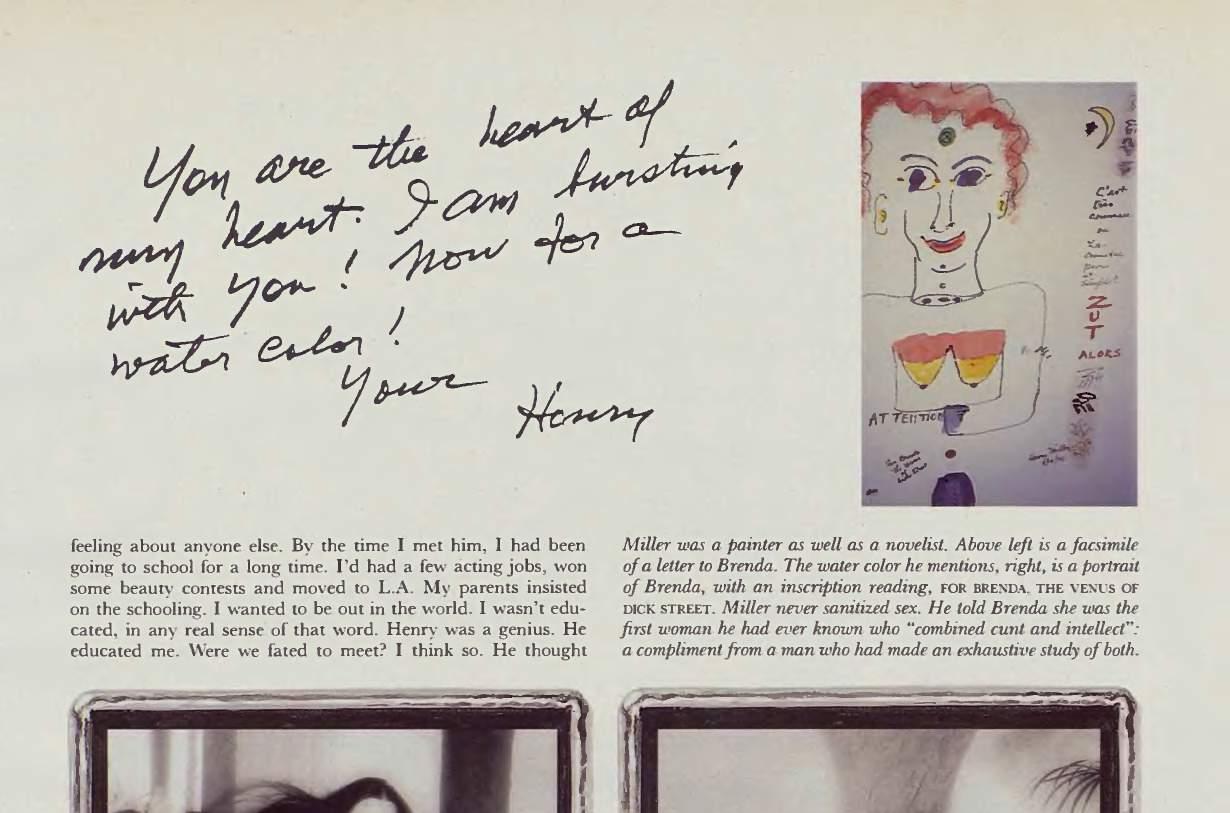 You are the heart of
my heart. I am bursting
with you! Now for a
water color!
Your
Henry
C'est
très
comme
ou
La
ZUT
ALORS
ATTENTION
feeling about anyone else. By the time I met him, I had been
going to school for a long time. I'd had a few acting jobs, won
some beauty contests and moved to L.A. My parents insisted
on the schooling. I wanted to be out in the world. I wasn't edu-
cated, in any real sense of that word. Henry was a genius. He
educated me. Were we fated to meet? I think so. He thought
Miller was a painter as well as a novelist. Above left is a facsimile
of a letter to Brenda. The water color he mentions, right, is a portrait
of Brenda, with an inscription reading, FOR BRENDA, THE VENUS OF
DICK STREET. Miller never sanitized sex. He told Brenda she was the
first woman he had ever known who "combined cunt and intellect":
a compliment from a man who had made an exhaustive study of both.